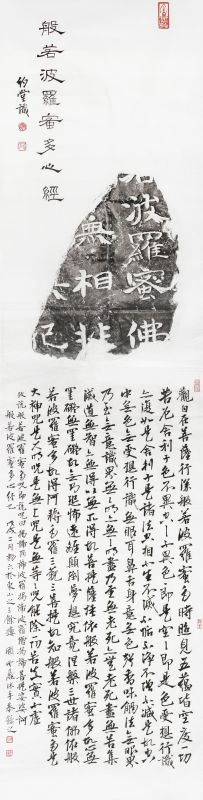 般若波羅蜜多心經
堂識
若波羅蜜佛
無相
觀自在菩薩行深般若波羅蜜多時照見五蘊皆空度一切
苦厄舍利子色不異空空不異色色即是空空即是色受想行識
亦復如是舍利子是諸法空相不生不滅不垢不淨不增不減是故空
中無色無受想行識無眼耳鼻舌身意無色聲香味觸法無眼界
乃至無意識界無無明亦無無明盡乃至無老死亦無老死盡無苦集
滅道無智亦無得以無所得故菩提薩埵依般若波羅蜜多故心無
罣礙無罣礙故無有恐怖遠離顛倒夢想究竟涅槃三世諸佛依般
若波羅蜜多故得阿耨多羅三藐三菩提故知般若波羅蜜多是
大神咒是大明咒是無上咒是無等等咒能除一切苦真實不虛
故說般若波羅蜜多咒即說咒曰揭諦揭諦波羅揭諦波羅僧揭諦菩提娑婆訶
般若波羅蜜多心經